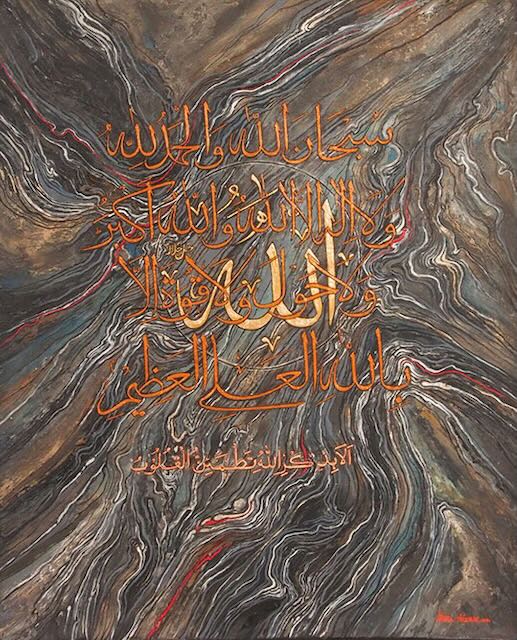 سُبْحَانَ اللّٰهِ وَالْحَمْدُ لِلّٰهِ
وَلَا إِلٰهَ إِلَّا اللّٰهُ وَاللّٰهُ أَكْبَرُ
وَلَا حَوْلَ وَلَا قُوَّةَ إِلَّا
بِاللّٰهِ الْعَلِيِّ الْعَظِيمِ
الله
أَلَا بِذِكْرِ اللّٰهِ تَطْمَئِنُّ الْقُلُوبُ